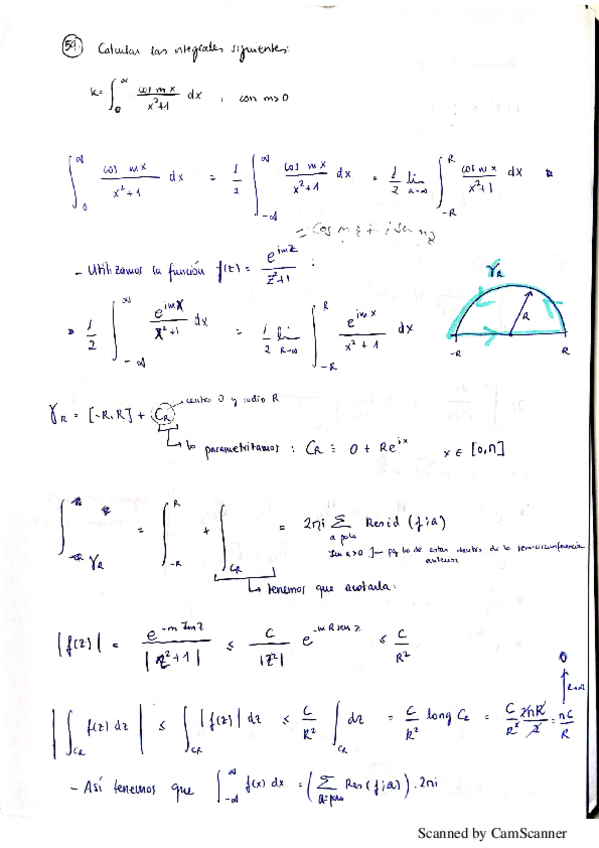 59. Calcular las integrales siguientes:
K = ∫_0^∞ cos mx / x²+1 dx , con m>0
∫_0^∞ cos mx / x²+1 dx = 1/2 ∫_{-∞}^∞ cos mx / x²+1 dx = 1/2 lim_{R→∞} ∫_{-R}^R cos mx / x²+1 dx
= cos mz + i sen mz
- Utilizamos la función f(z) = e^{imz} / z²+1 :
γ_R
1/2 ∫_{-∞}^∞ e^{imx} / x²+1 dx = 1/2 lim_{R→∞} ∫_{-R}^R e^{imx} / x²+1 dx
R
-R R
centro 0 y radio R
γ_R = [-R,R] + C_R
lo parametrizamos : C_R ≡ 0 + Re^{ix} x ∈ [0,π]
∫_{γ_R} = ∫_{-R}^R + ∫_{C_R} = 2πi Σ Resid (f;a)
a polo
Im a>0 → pq ha de estar dentro de la semicircunferencia
anterior
tenemos que acotarla:
|f(z)| = e^{-m Im z} / |z²+1| ≤ C / |z²| e^{-mR sen z} ≤ C / R²
0
R→∞
|∫_{C_R} f(z) dz| ≤ ∫_{C_R} |f(z)| dz ≤ C/R² ∫_{C_R} dz = C/R² long C_R = C/R² 2πR/2 = πC/R
- Así tenemos que ∫_{-∞}^∞ f(x) dx = (Σ_{a=polo} Res(f;a)) · 2πi
Scanned by CamScanner